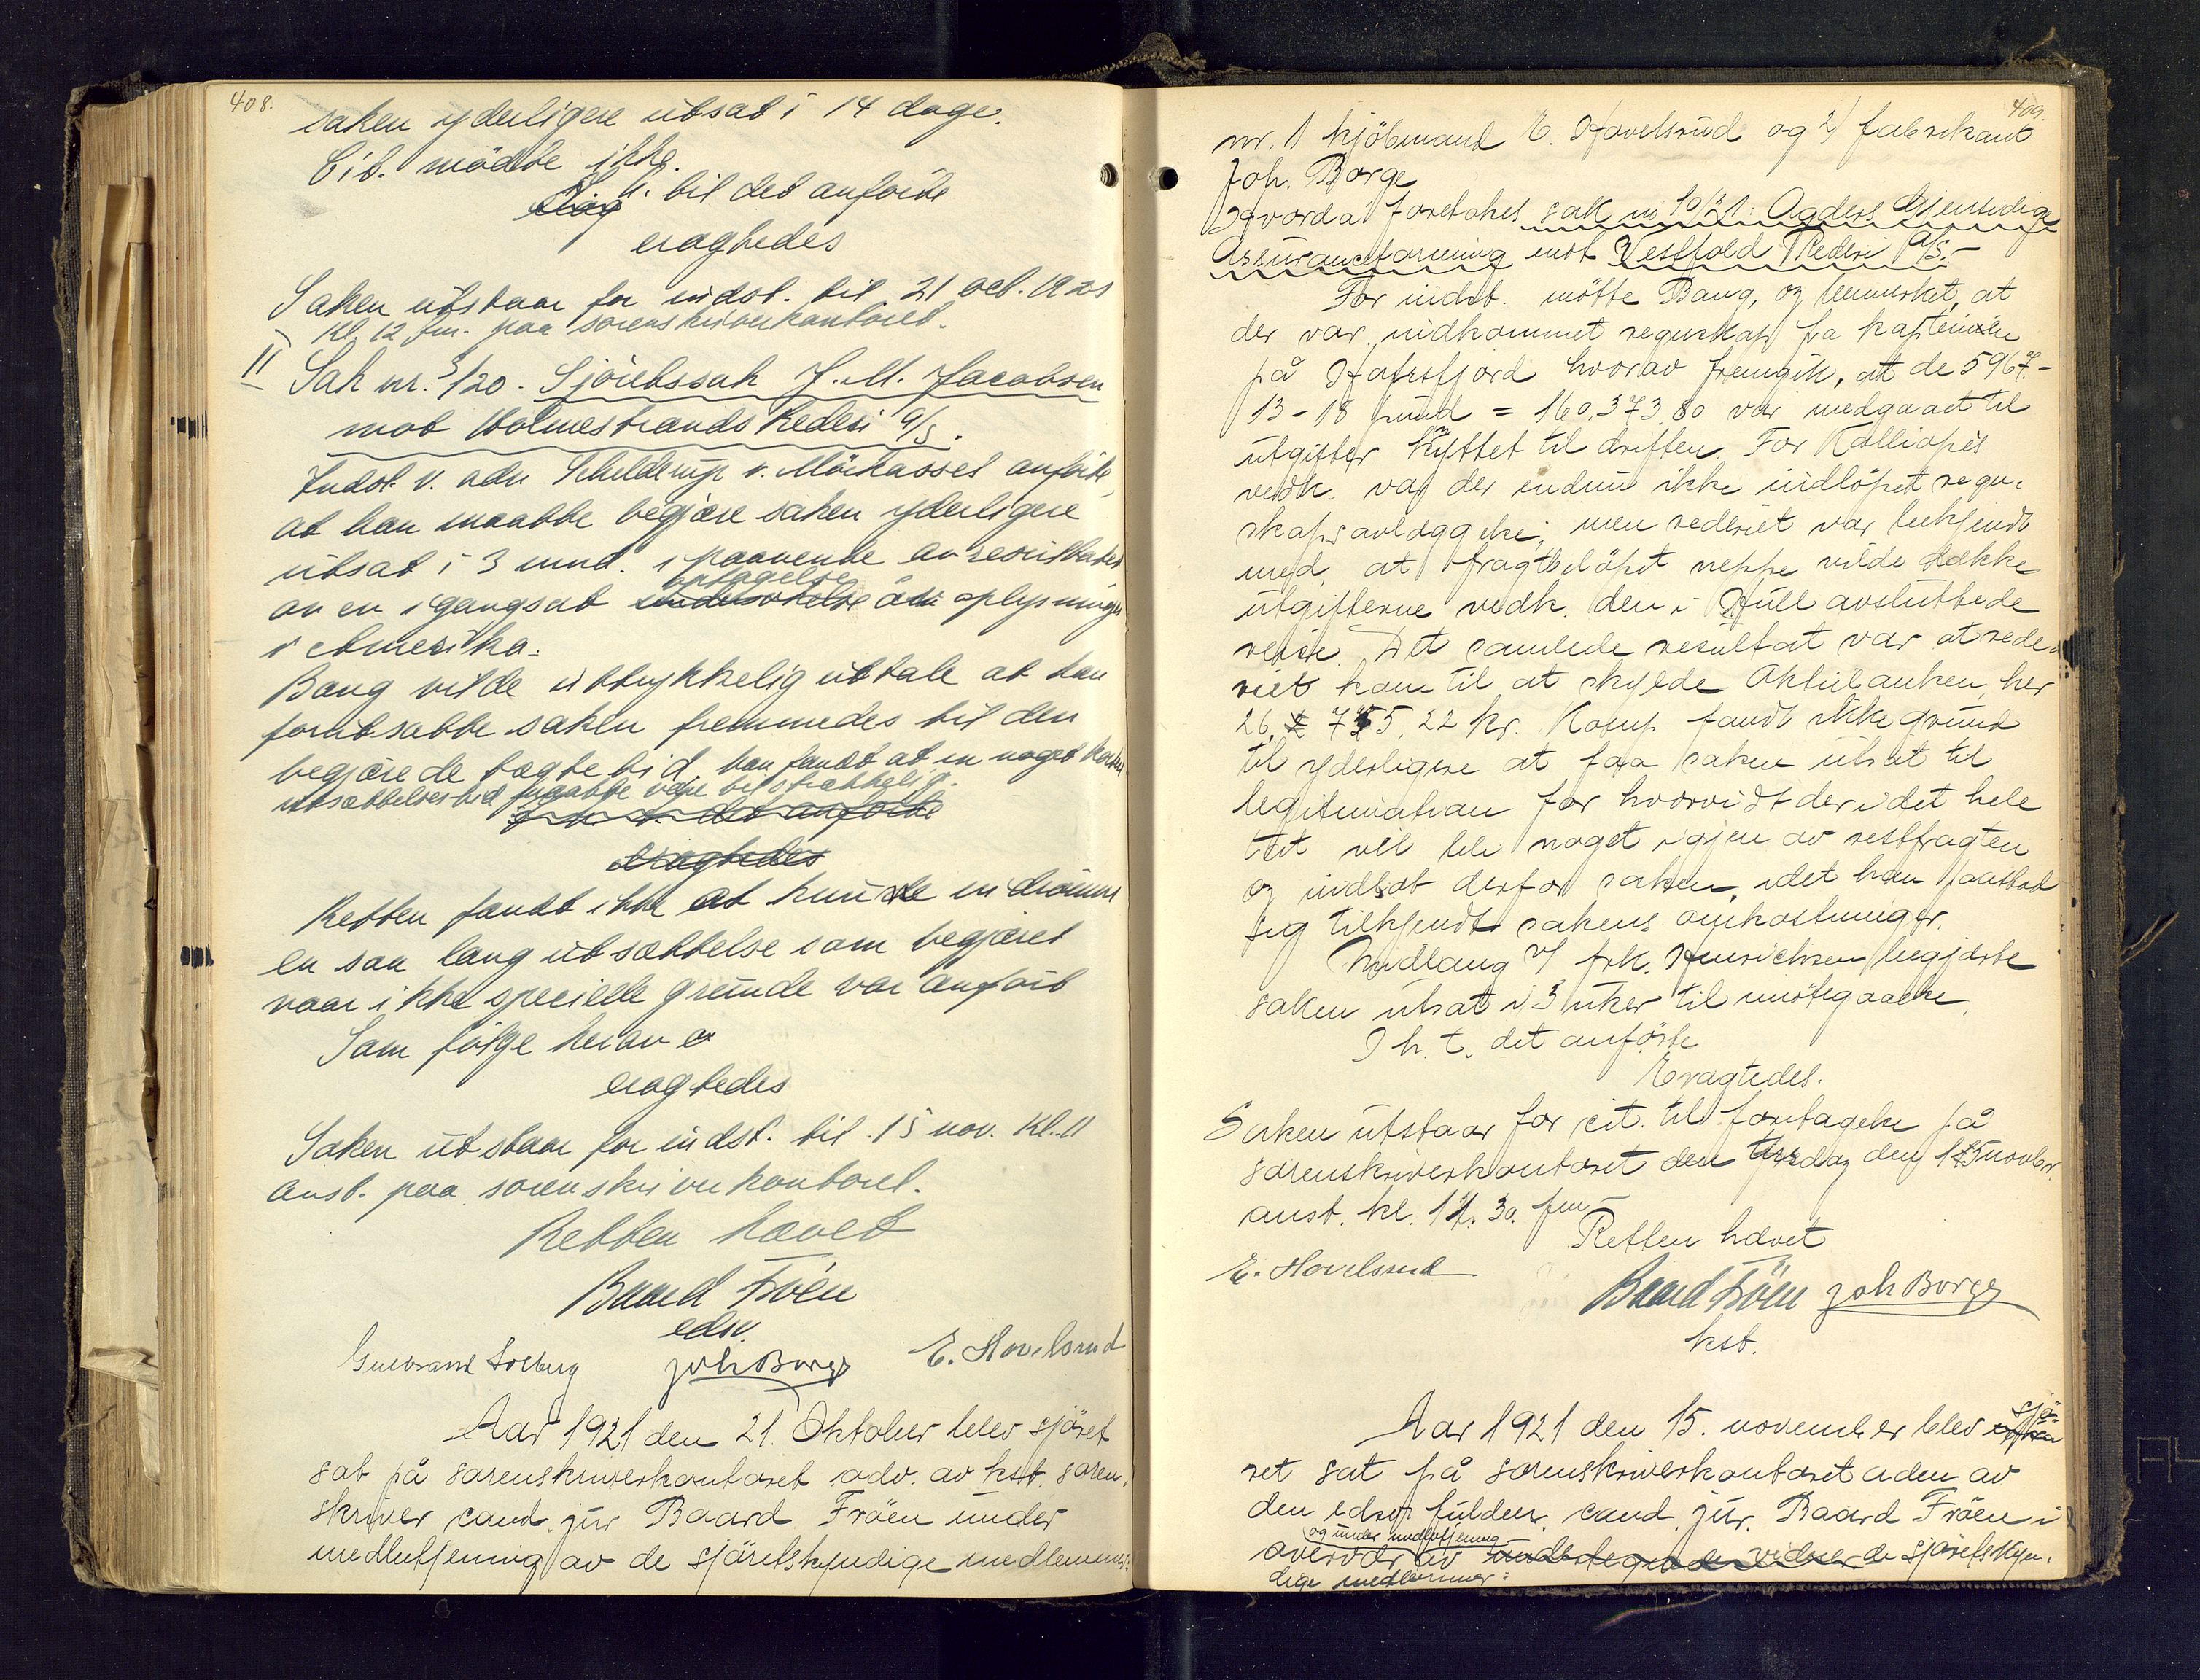 408.
saken yderligere utsat i 14 dage.
Cit. mødte ikke.
I h. til det anførte
eragtedes
Saken utstaar for indst. til 21 oct. 1921
kl. 12 fm. paa sorenskriverkontoret.
II Sak nr. 3/20. Sjöretssak J. M. Jacobsen
mot Holmestrands Rederi A/S.
Indst. v. adv. Schelderup v. anförte,
at han maatte begjære saken yderligere
utsat i 3 mnd. i paavente av resultatet
optagelse
av en igangsat av oplysninger
i Amerika.
Bang vilde uttrykkelig uttale at han
forutsatte saken fremmedes til den
begjærede tægtetid, han fandt at en noget kortere
utsættelsestid maatte være tilstrækkelig.
I h. t. det anførte
eragtedes
Retten fandt ikke at kunde indrömme
en saa lang utsættelse som begjæret
naar ikke specielle grunde var anfört
Som fölge herav
eragtedes
Saken utstaar for indst. til 15 nov. kl. 11
anst. paa sorenskriverkontoret.
Retten hævet
Baard Fröen
edsv.
Gulbrand Solberg Joh Borge E. Hovelsrud
Aar 1921 den 21. Oktober blev sjöret
sat på sorenskriverkontoret adv. av kst. soren-
skriver cand. jur Baard Fröen under
medbetjening av de sjöretskyndige medlemmer:
409.
nr. 1 kjöbmand E. Hovelsrud og 2) fabrikant
Joh. Borge
Hvorda foretokes sak no 10/21: Agders Gjensidige
Assuranceforening mot Vestfold Rederi A/S.-
For indst. mötte Bang, og bemerket, at
der var indkommet regnskap fra kapteinen
på Hafrsfjord hvorav fremgik, at de 5967.-
13-18 pund = 160.373,80 var medgaaet til
utgifter knyttet til driften. For Kalliopes
vedk. var der endnu ikke indlöpet regn-
skapsavlæggelse; men rederiet var bekjendt
med, at fragtbelöpet neppe vilde dække
utgifterne vedk. den i Hull avsluttede
reise. Det samlede resultat var at rede-
riet kom til at skylde Aktiebanken her
26. 755,22 kr. Komp. fandt ikke grund
til yderligere at faa saken utsat til
legitimation for hvorvidt der i det hele
tat vil bli noget igjen av restfragten
og indlot derfor saken, idet han paastod
sig tilkjendt sakens omkostninger.
v/ frk. Henrichsen begjærte
saken utsat i 3 uker til imötegaaelse.
I h. t. det anförte
Eragtedes.
Saken utstaar for cit. til foretagelse på
sorenskriverkontoret den tirsdag den 15 novbr.
anst. kl. 11.30. fm.-
Retten hævet
E. Hovelsrud
Baard Fröen Joh Borge
kst.
Aar 1921 den 15. november blev sjö-
ret sat på sorenskriverkontoret adm av
den edsv. fuldm. cand. jur. Baard Fröen i
og under medbetjening
overvær av undertegnede vidner de sjöretskyn-
dige medlemmer: